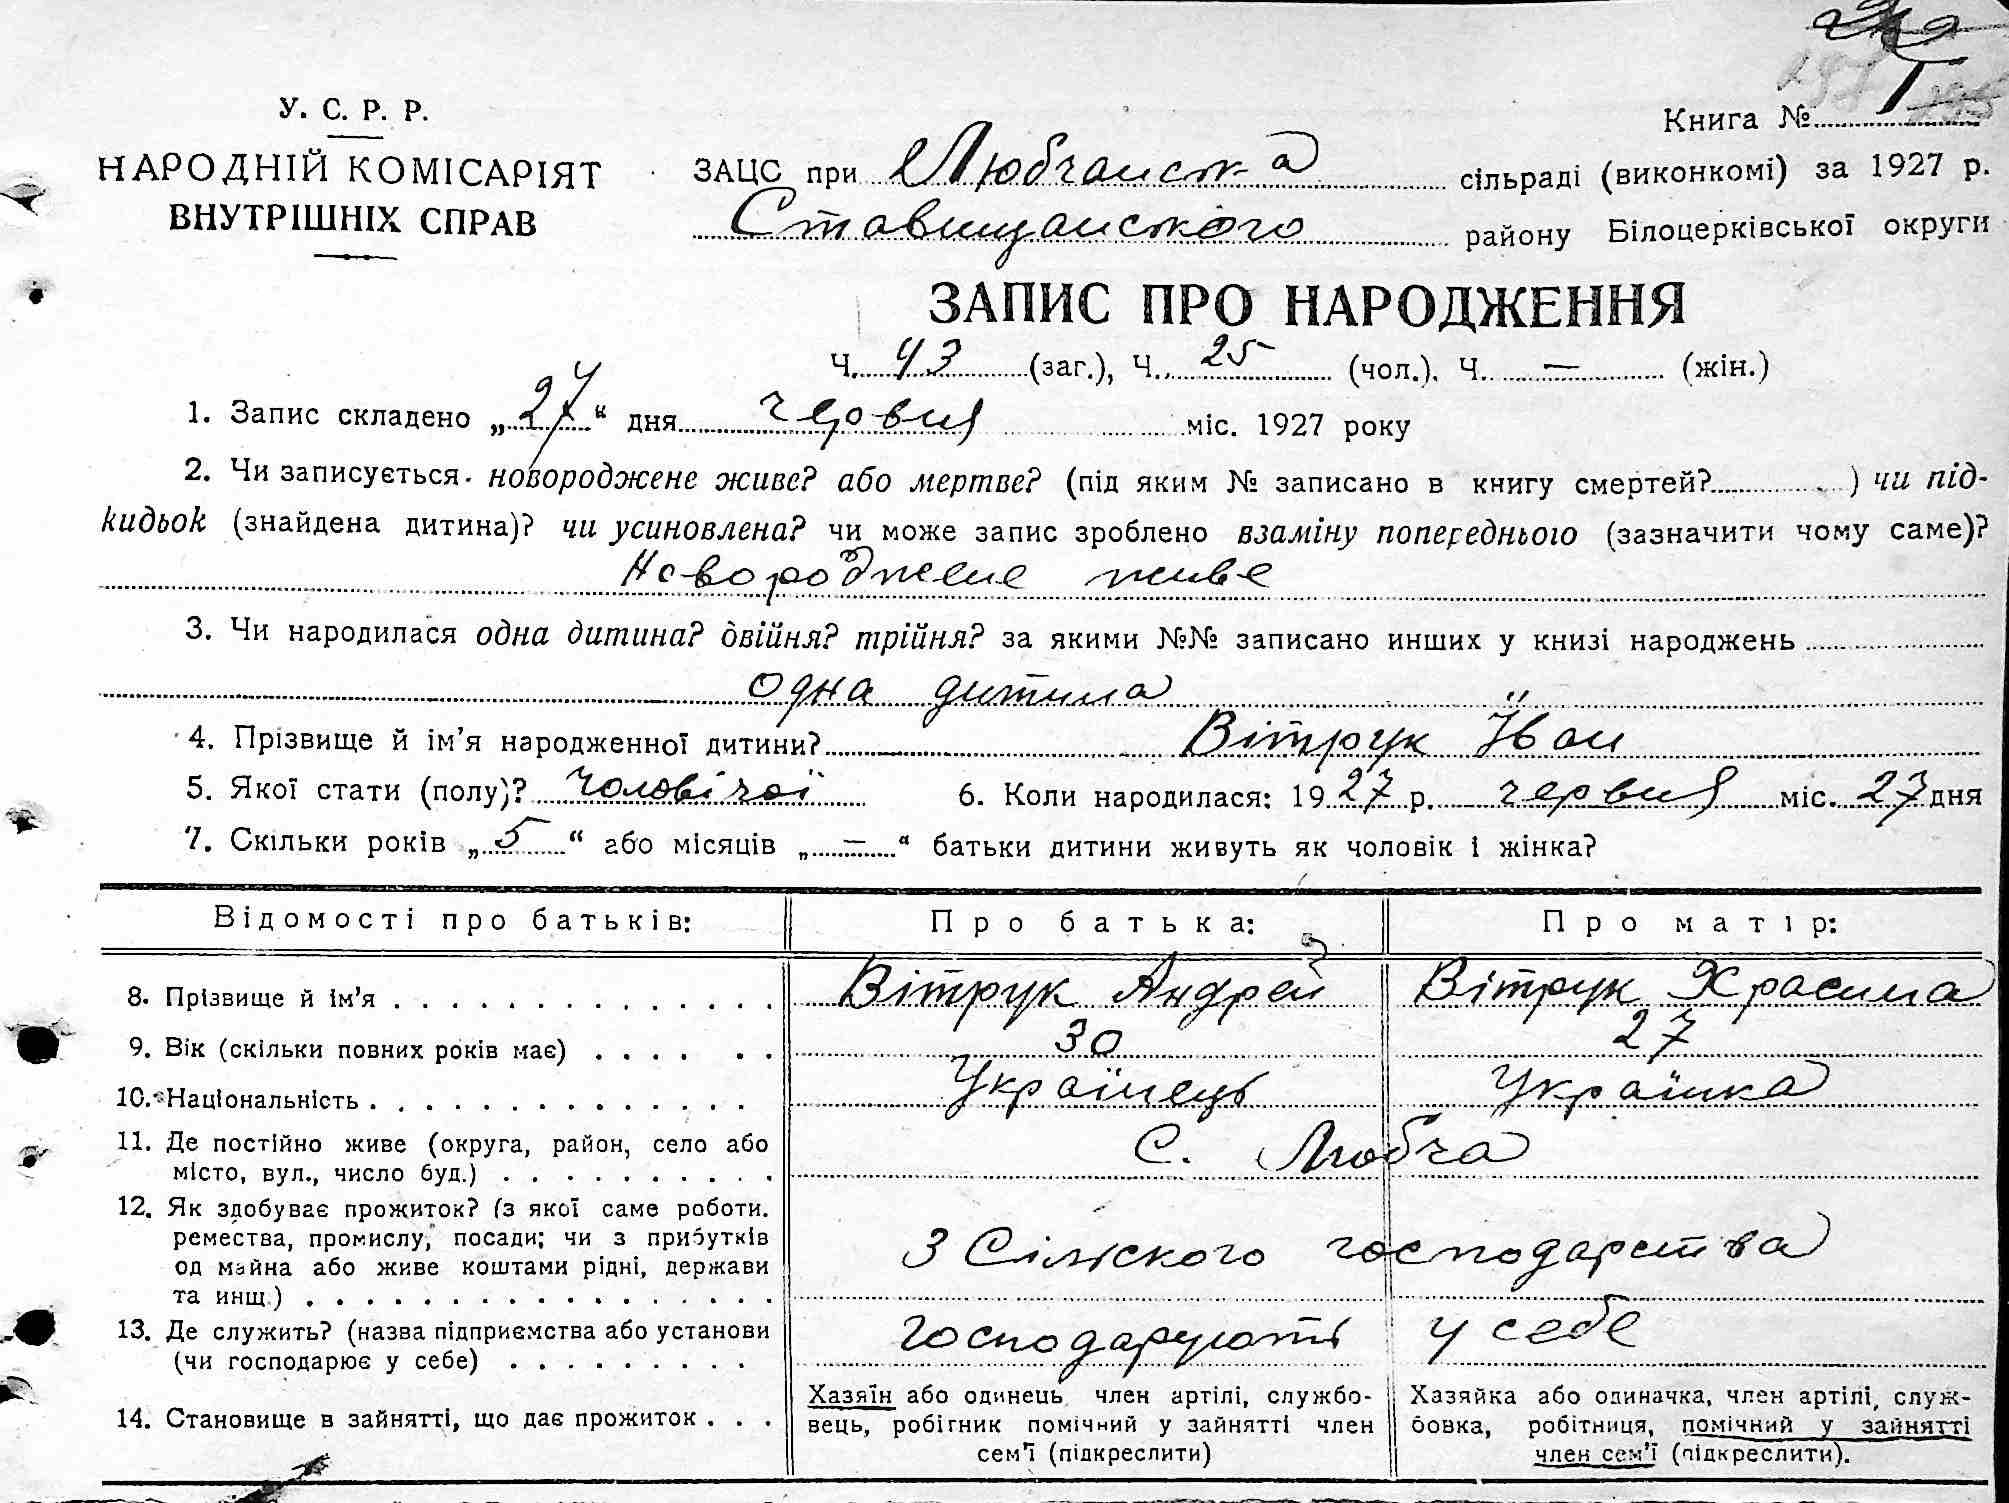 У. С. Р. Р.
НАРОДНІЙ КОМІСАРІЯТ
ВНУТРІШНІХ СПРАВ
Книга №
ЗАЦС при Любчанська сільраді (виконкомі) за 1927 р.
Ставищанського району Білоцерківської округи
ЗАПИС ПРО НАРОДЖЕННЯ
Ч. 43 (заг.), Ч. 25 (чол.). Ч. — (жін.)
1. Запис складено „27“ дня червня міс. 1927 року
2. Чи записується новороджене живе? або мертве? (під яким № записано в книгу смертей? ) чи під-
кидьок (знайдена дитина)? чи усиновлена? чи може запис зроблено взаміну попереднього (зазначити чому саме)?
Новороджене живе
3. Чи народилася одна дитина? двійня? трійня? за якими №№ записано инших у книзі народжень
одна дитина
4. Прізвище й ім’я народженної дитини? Вітрук Іван
5. Якої стати (полу)? чоловічої 6. Коли народилася: 1927 р. червня міс. 27 дня
7. Скільки років „5“ або місяців „—“ батьки дитини живуть як чоловік і жінка?
Відомості про батьків: Про батька: Про матір:
8. Прізвище й ім’я Вітрук Андрей Вітрук Храсина
9. Вік (скільки повних років має) 30 27
10. Національність Українець Українка
11. Де постійно живе (округа, район, село або
місто, вул., число буд.) С. Любча
12. Як здобуває прожиток? (з якої саме роботи.
ремества, промислу, посади; чи з прибутків
од майна або живе коштами рідні, держави
та инщ.) З Сільского господарства
13. Де служить? (назва підприємства або установи
(чи господарює у себе) господарують у себе
14. Становище в зайнятті, що дає прожиток
Хазяїн або одинець член артілі, службо-
вець, робітник помічний у зайнятті член
сем’ї (підкреслити)
Хазяйка або одиначка, член артілі, служ-
бовка, робітниця, помічний у зайнятті
член сем’ї (підкреслити).